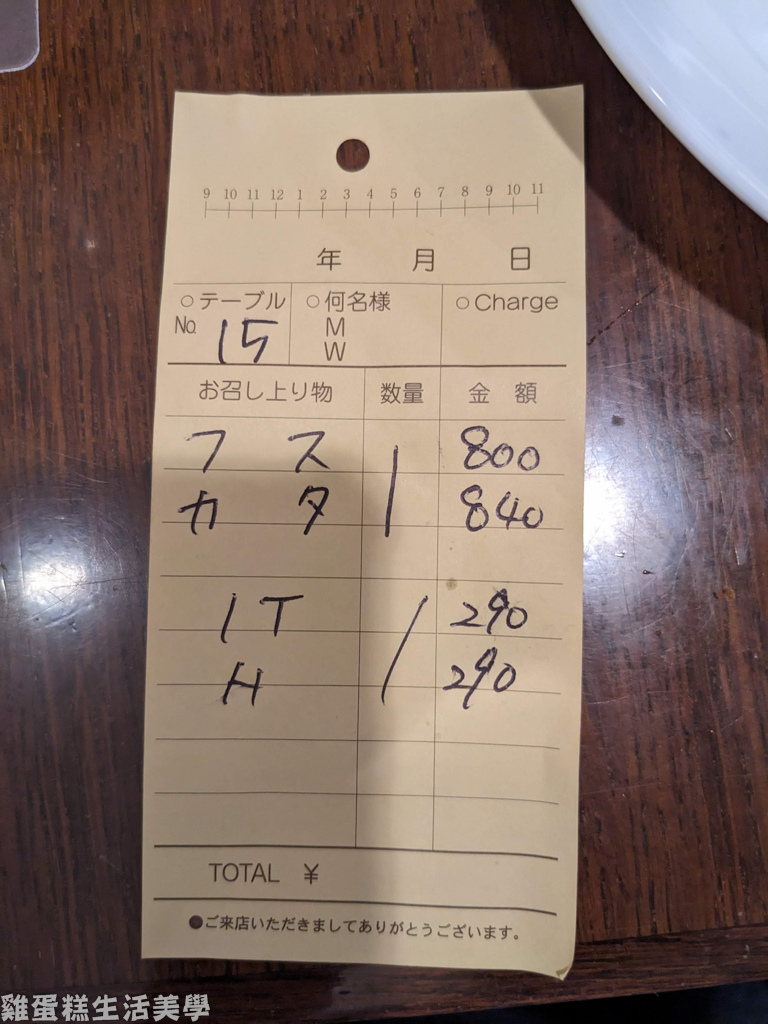 9 10 11 12 1 2 3 4 5 6 7 8 9 10 11
年 月 日
○テーブル ○何名様 ○Charge
No. 15 M
W
お召し上り物 数量 金額
フ ス 1 800
カ タ 840
1T 1 290
H 290
TOTAL ¥
●ご来店いただきましてありがとうございます。
雞蛋糕生活美學